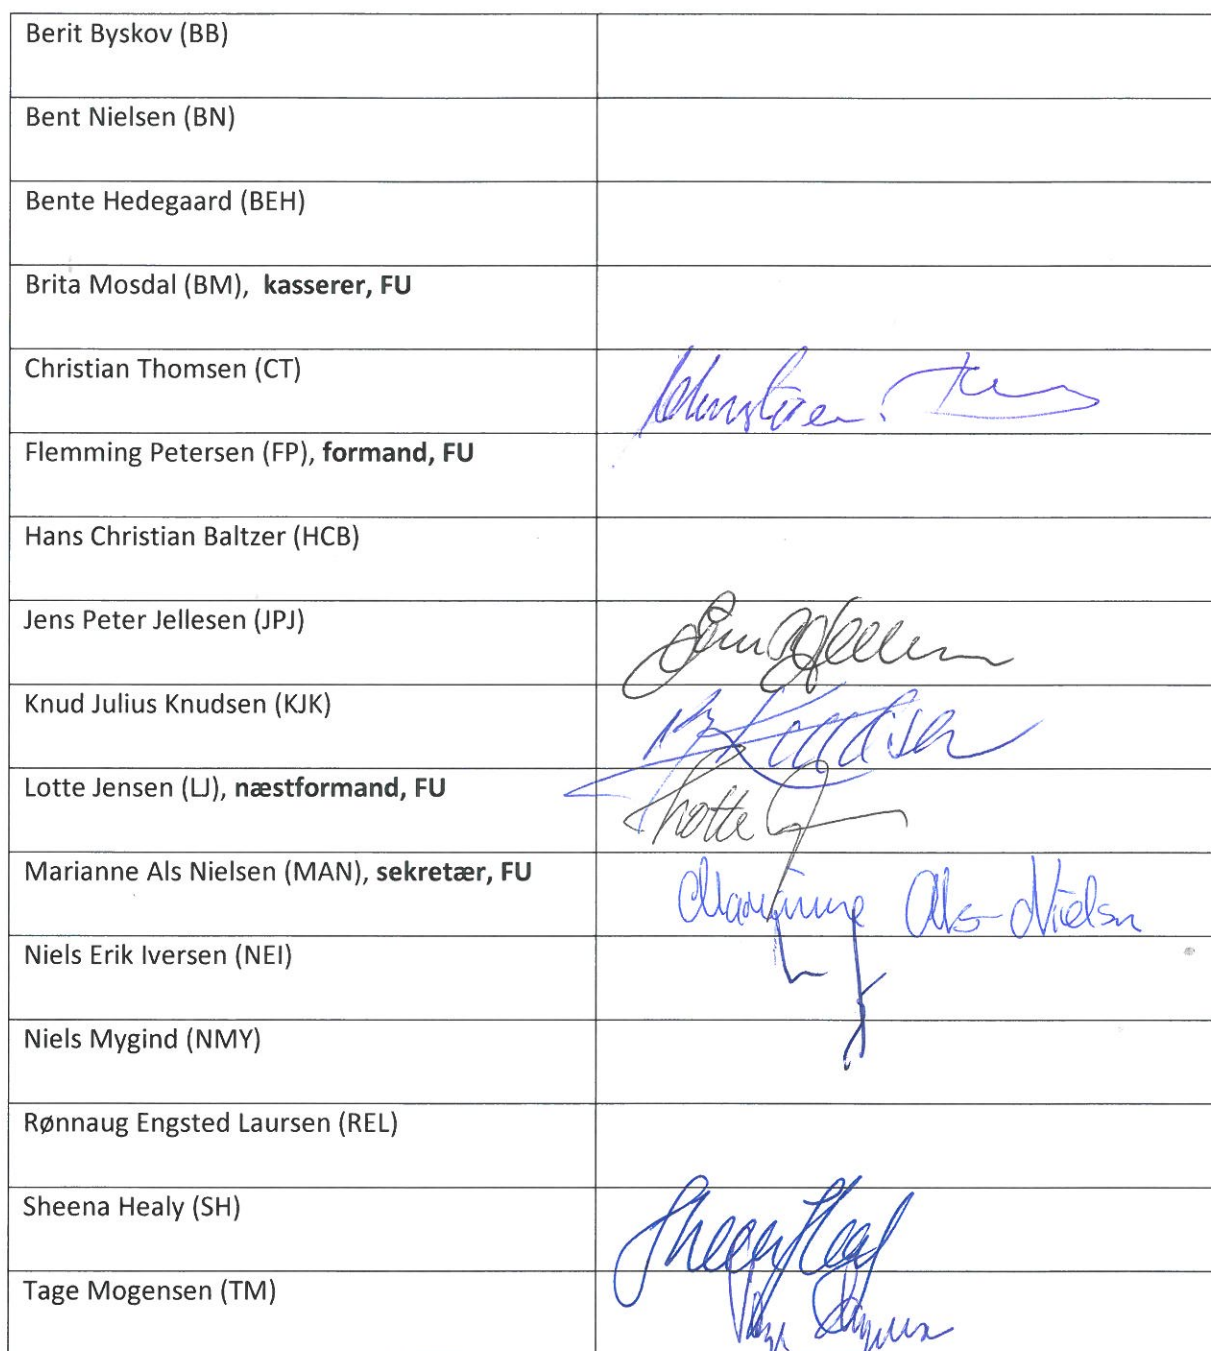 Berit Byskov (BB)
Bent Nielsen (BN)
Bente Hedegaard (BEH)
Brita Mosdal (BM), kasserer, FU
Christian Thomsen (CT)
Flemming Petersen (FP), formand, FU
Hans Christian Baltzer (HCB)
Jens Peter Jellesen (JPJ)
Knud Julius Knudsen (KJK)
Lotte Jensen (LJ), næstformand, FU
Lotte
Marianne Als Nielsen (MAN), sekretær, FU
Marianne Als Nielsen
Niels Erik Iversen (NEI)
Niels Mygind (NMY)
Rønnaug Engsted Laursen (REL)
Sheena Healy (SH)
Sheena Healy
Tage Mogensen (TM)